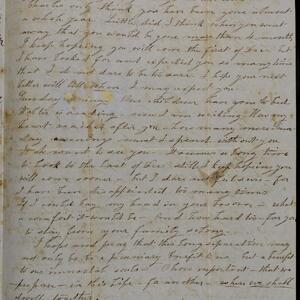 Charlie only think you have been gone almost
a whole year. Little did I think when you went
away that you would be gone more than 4 months
I keep hoping you will come the first of Dec. but
I have looked for and expected you so many times
that I do not dare to be sure. I hope you next
letter will tell when I may expect you
Sunday evening
Walter is reading and I am writing. How my
heart aches after you how many
evenings must I spend without you
I do want to see you.
to look to the last of Dec. still I keep hoping you
will come sooner - but I dare not
I have been disappointed so many times
If I could lay my head in your bosom - what
a comfort it would be. And how hard for you
to stay from your family so long.
I hope and pray that this long separation may
not only be to a pecuniary benefit but a benefit
to our immortal souls. How important that we
prepare in this life for another where we shall
dwell together.